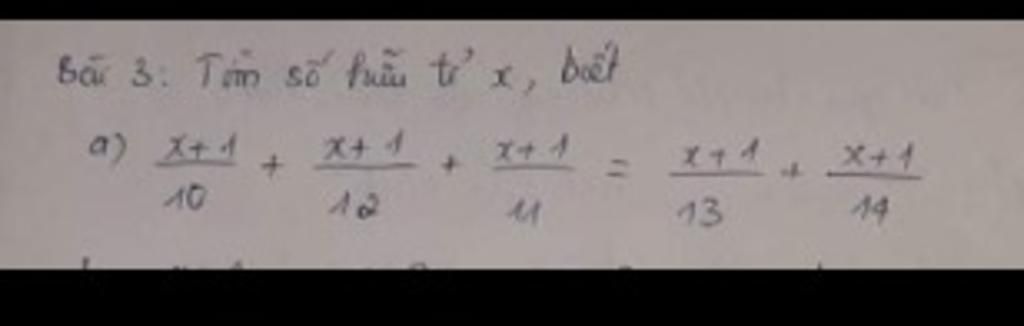 Bài 3: Tìm số hữu tỉ x, biết
a) \frac{x+1}{10} + \frac{x+1}{12} + \frac{x+1}{11} = \frac{x+1}{13} + \frac{x+1}{14}